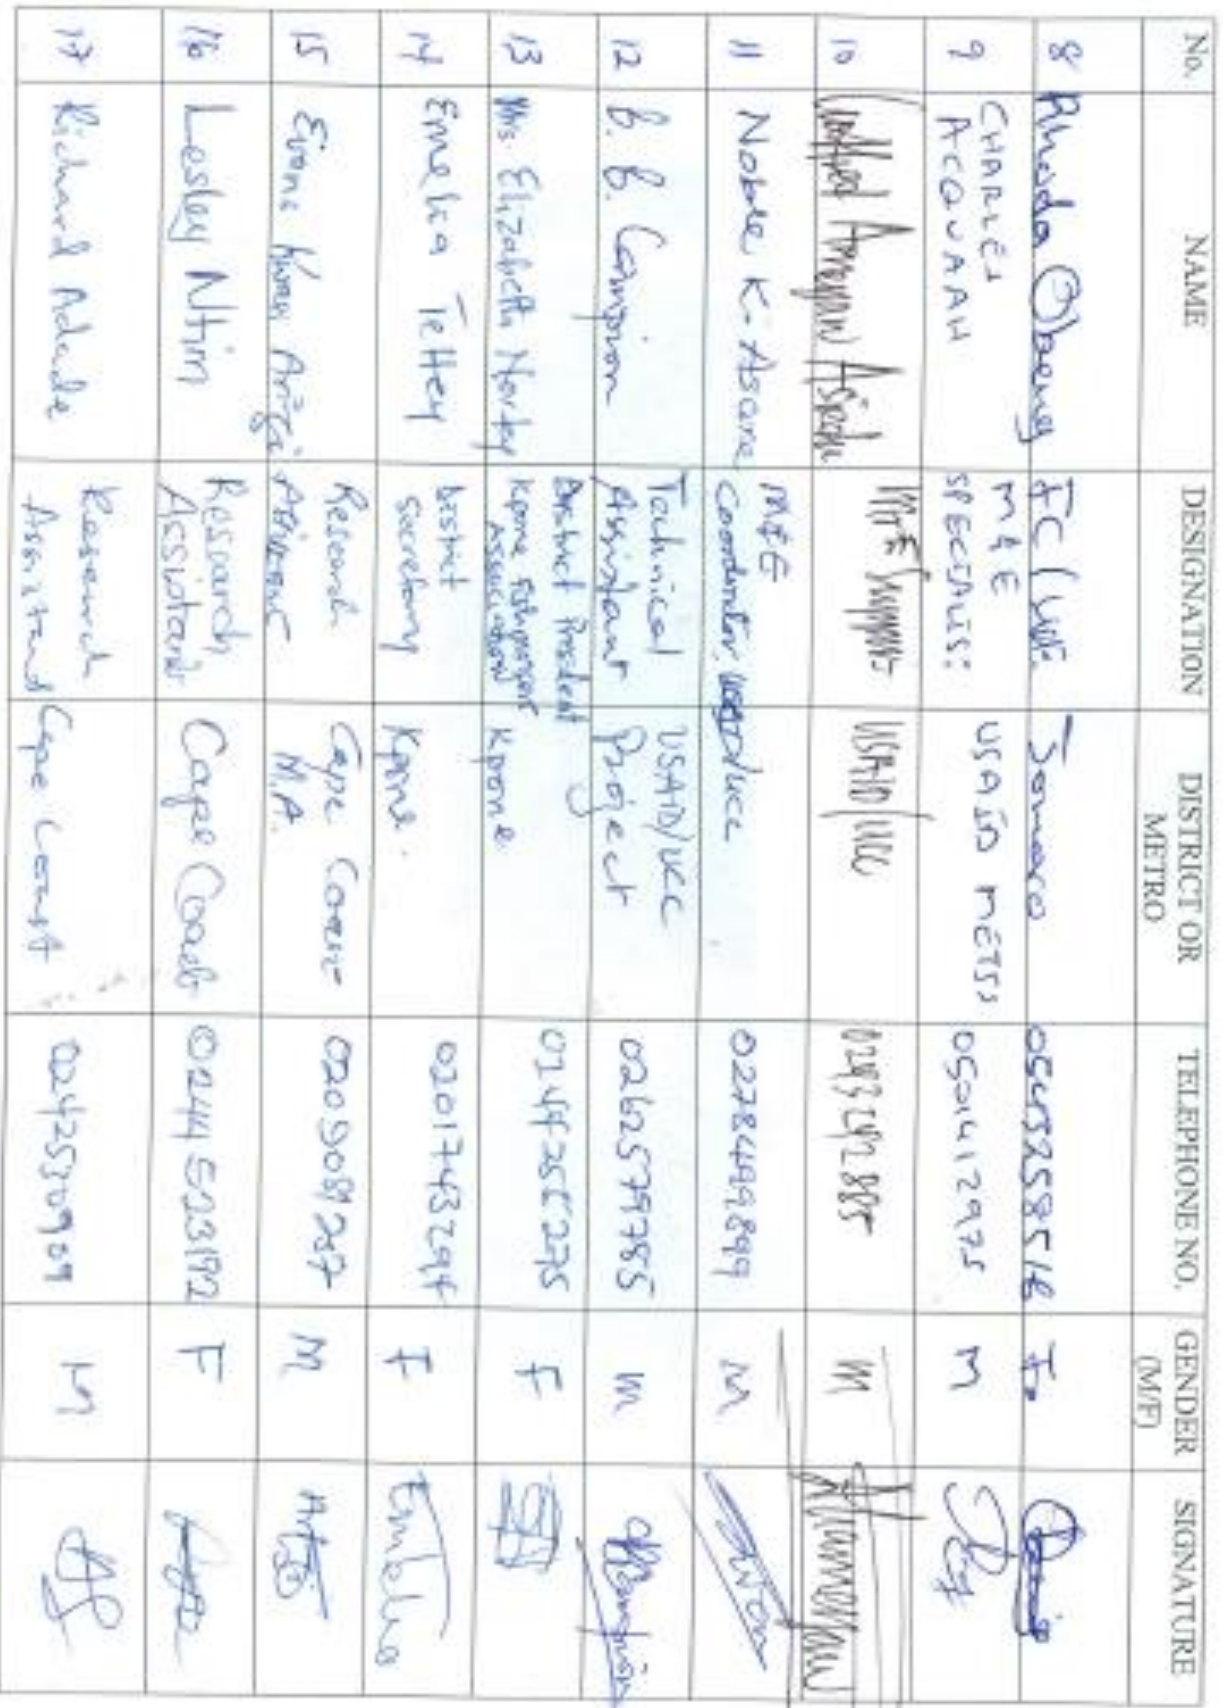 No. NAME DESIGNATION DISTRICT OR METRO TELEPHONE NO. GENDER (M/F) SIGNATURE
8 Rhoda FC
9 CHARLES ACQUAAH M&E SPECIALIST USAID METSS 0501412975 M
10 M&E Support USAID/UCC M
11 Noble K. Asare M&E Coordinator, USAID/UCC 0278499899 M
12 B. B. Campion Technical Assistant USAID/UCC Project 0262579785 M
13 Mrs. Elizabeth Nortey District President Kpone Fishmongers Association Kpone F
14 Emelia Tettey District Secretary Kpone. 0201743294 F Emelia
15 Evans Kwasi Arizi Research Advisor Cape Coast M.A. M
16 Lesley Ntim Research Assistant Cape Coast 0244523192 F
17 Richard Adade Research Assistant Cape Coast 0242530909 M